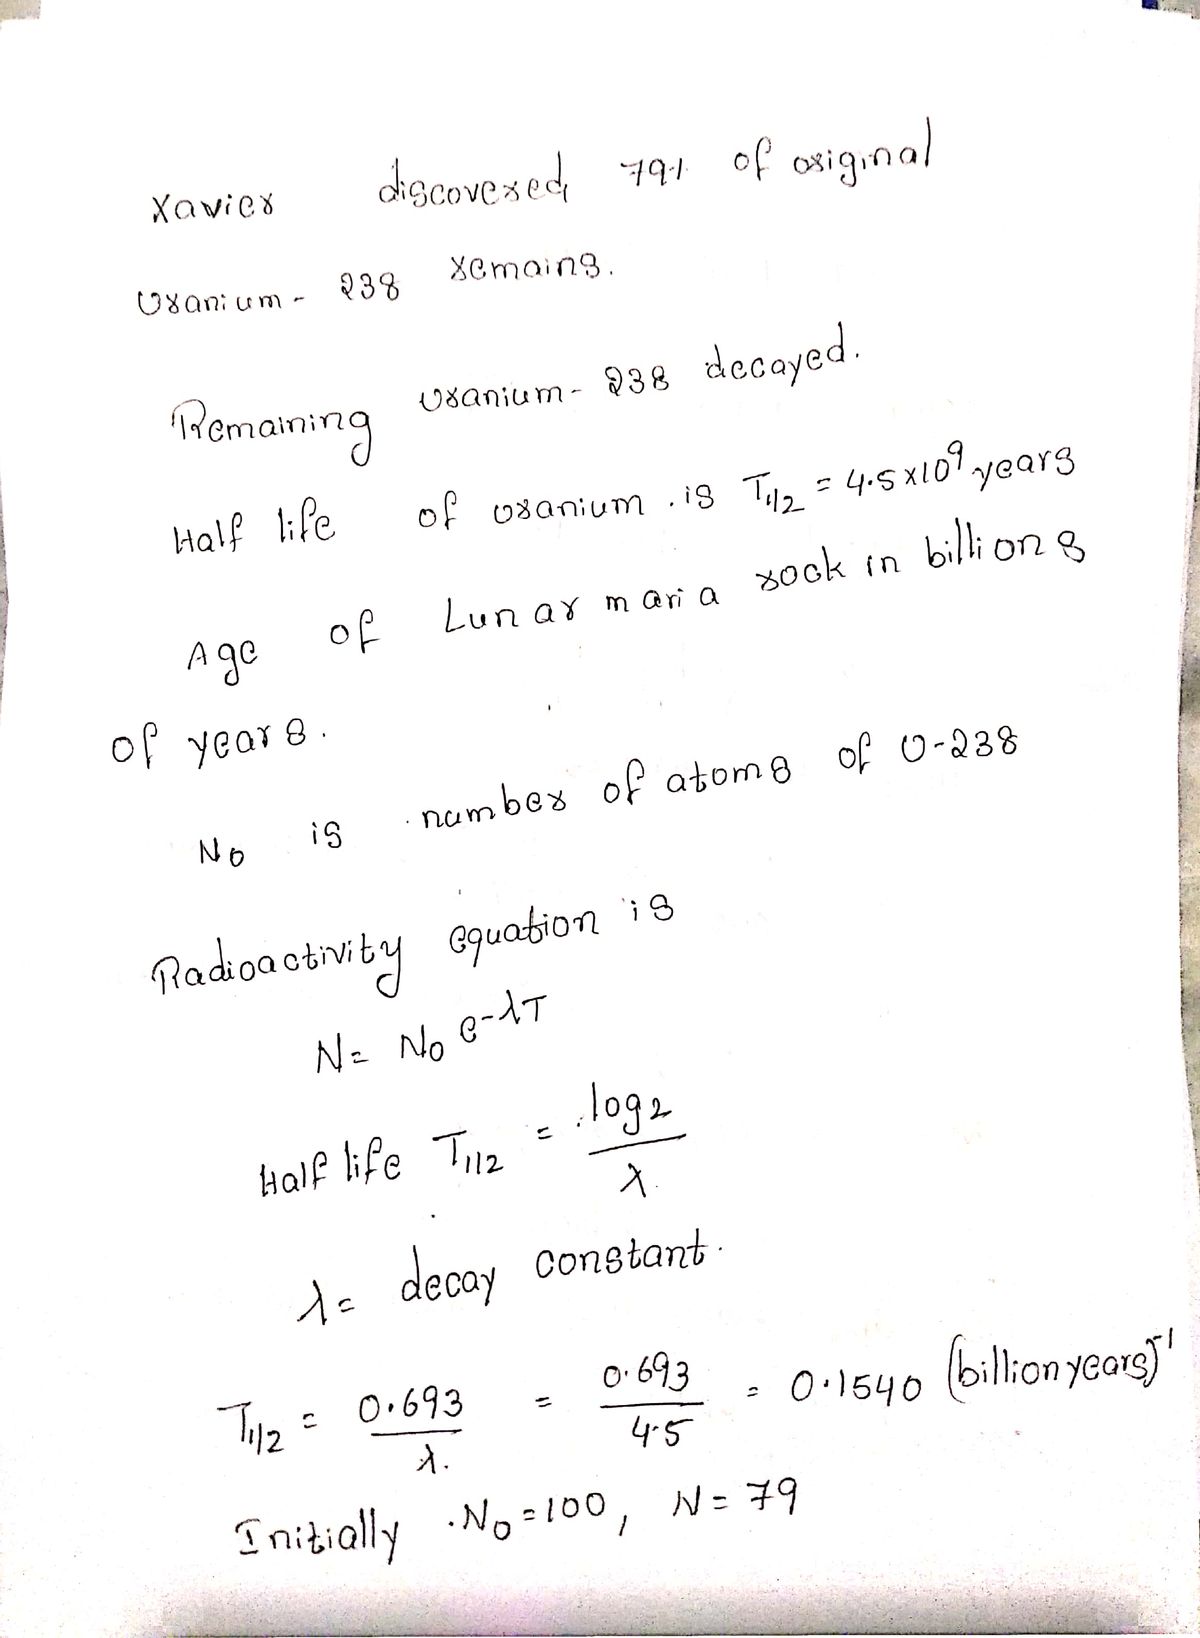 Xavier discovered 79% of original
Uranium - 238 remains.
Remaining Uranium - 238 decayed.
Half life of uranium is T1/2 = 4.5 x10^9 years
Age of Lunar maria rock in billions
of years.
No is number of atoms of U-238
Radioactivity equation is
N = No e^-λT
Half life T1/2 = log2/λ
λ = decay constant.
T1/2 = 0.693/λ. = 0.693/4.5 = 0.1540 (billion years)^-1
Initially No = 100, N = 79